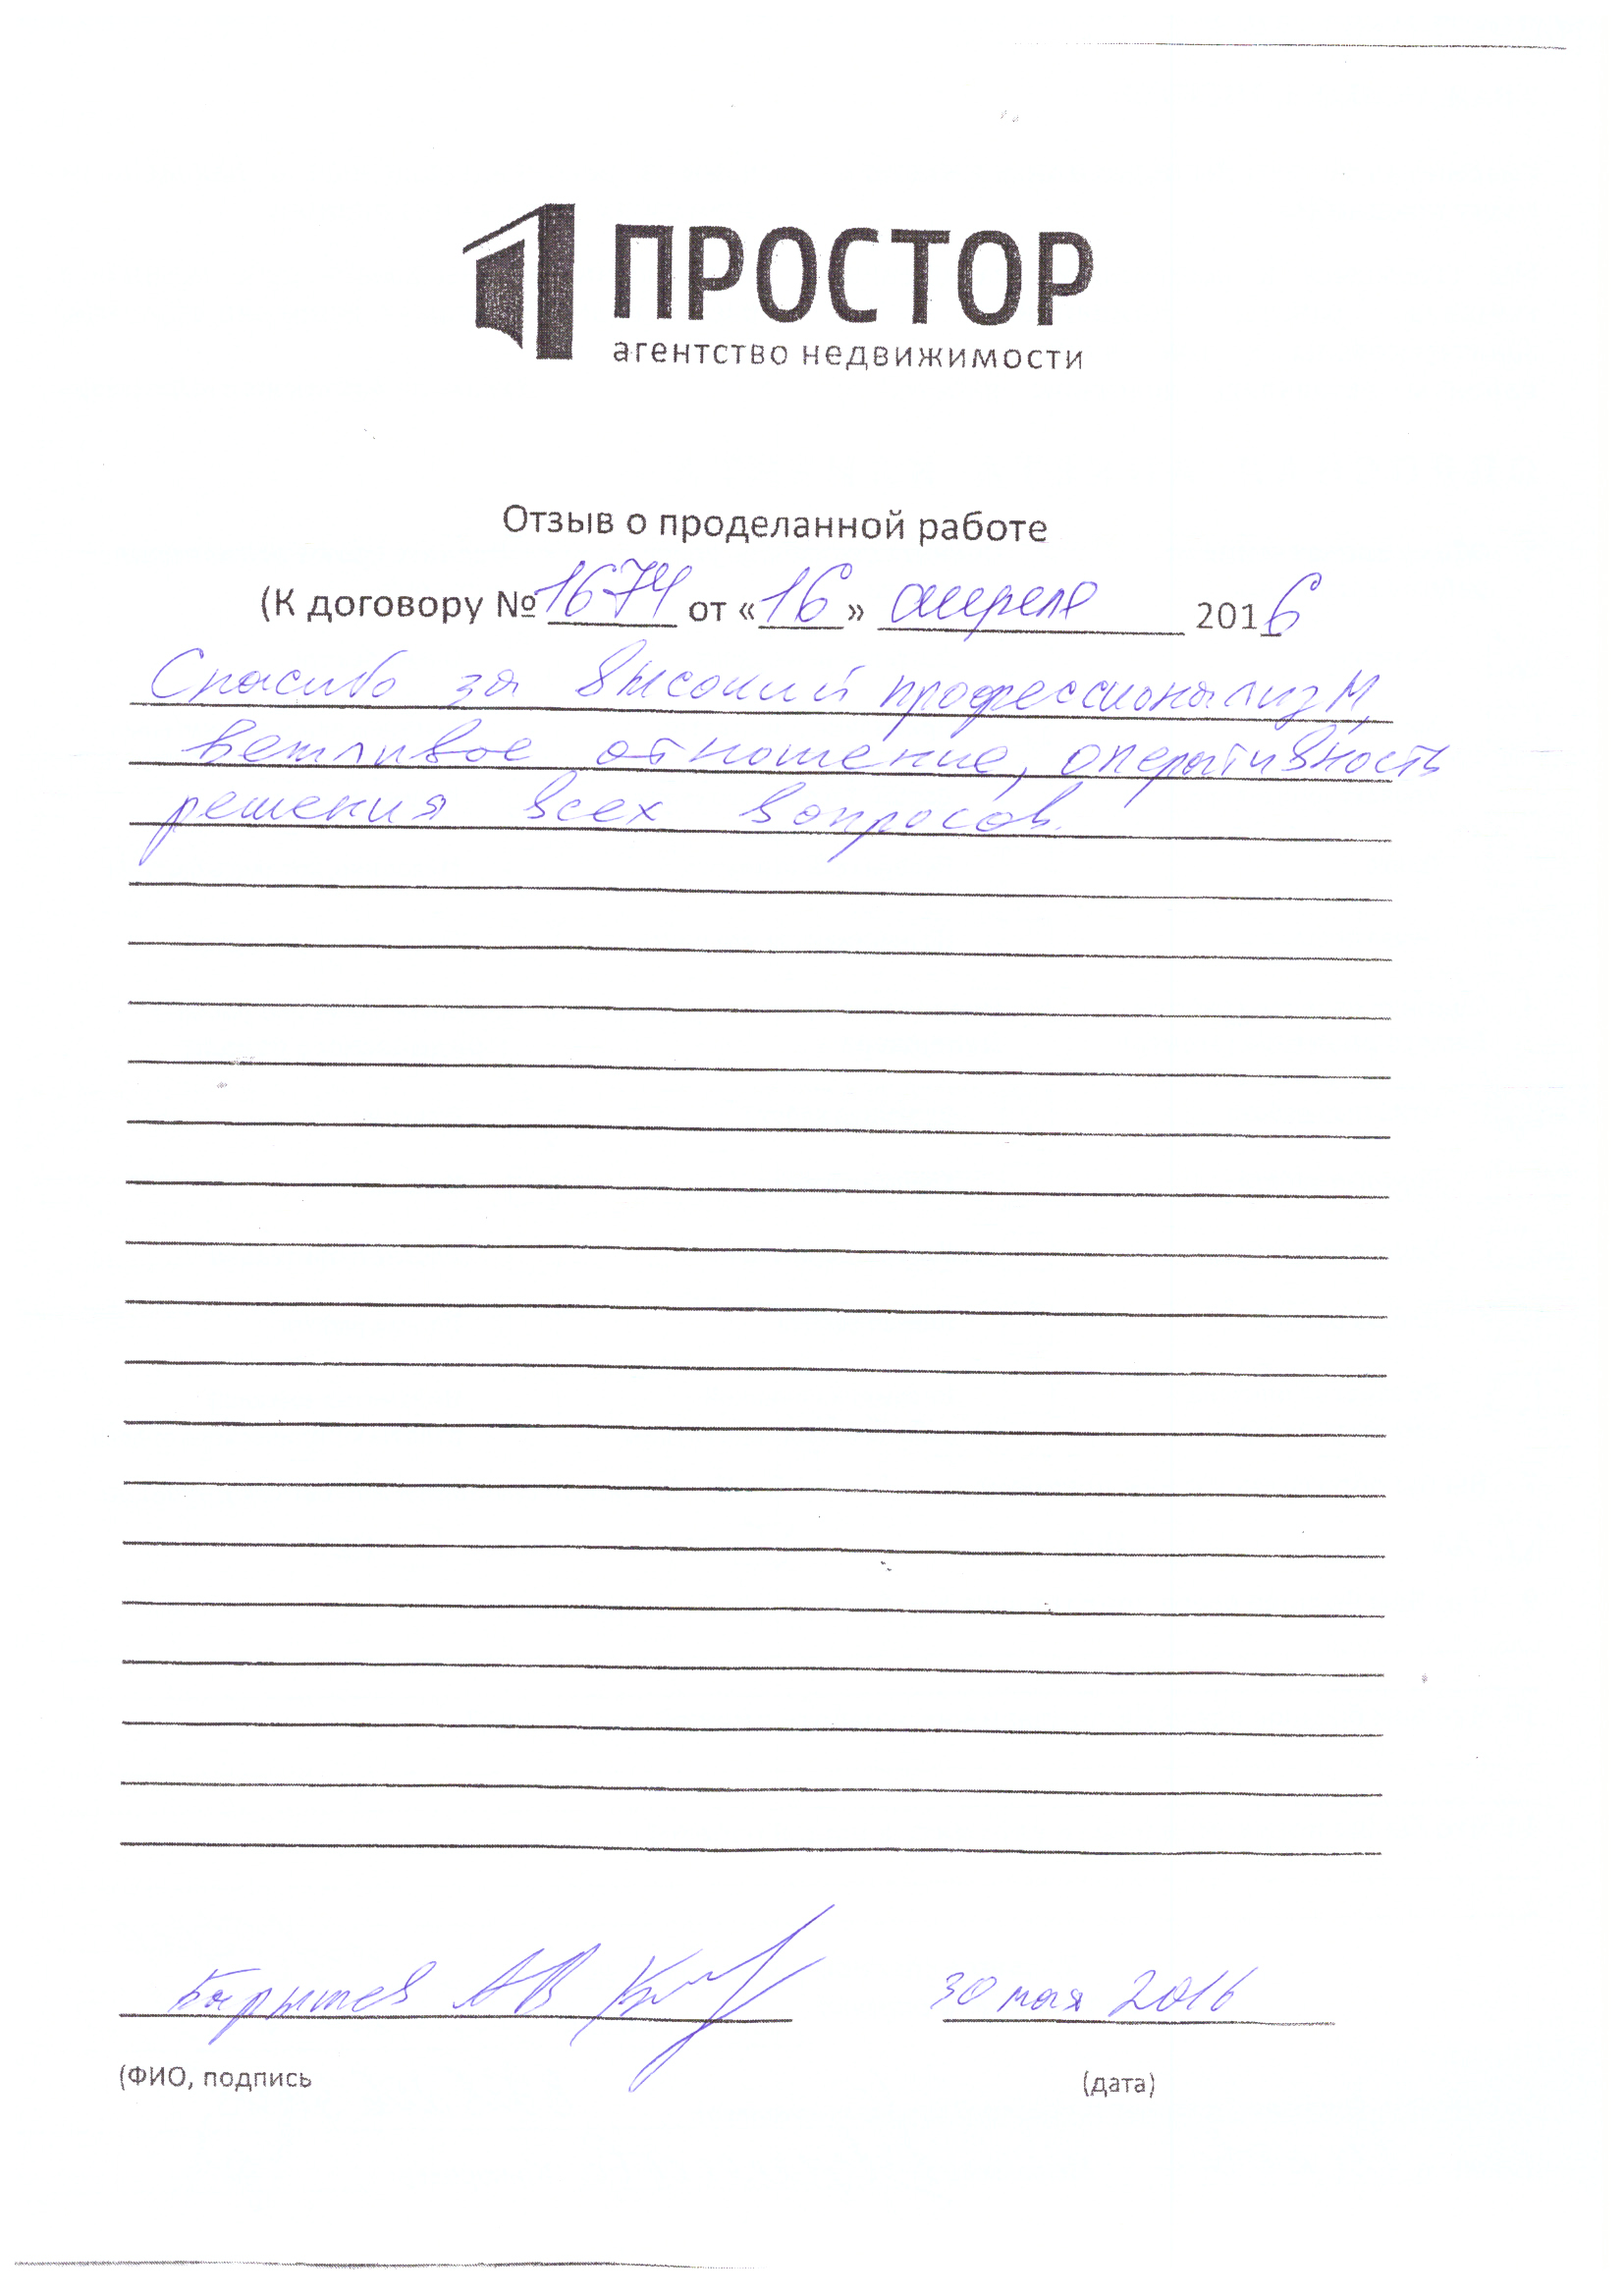 ПРОСТОР
агентство недвижимости
Отзыв о проделанной работе
(К договору № 1674 от «16» апреля 2016
Спасибо за высокий профессионализм,
вежливое отношение, оперативность
решения всех вопросов.
АВ
30 мая 2016
(ФИО, подпись
(дата)